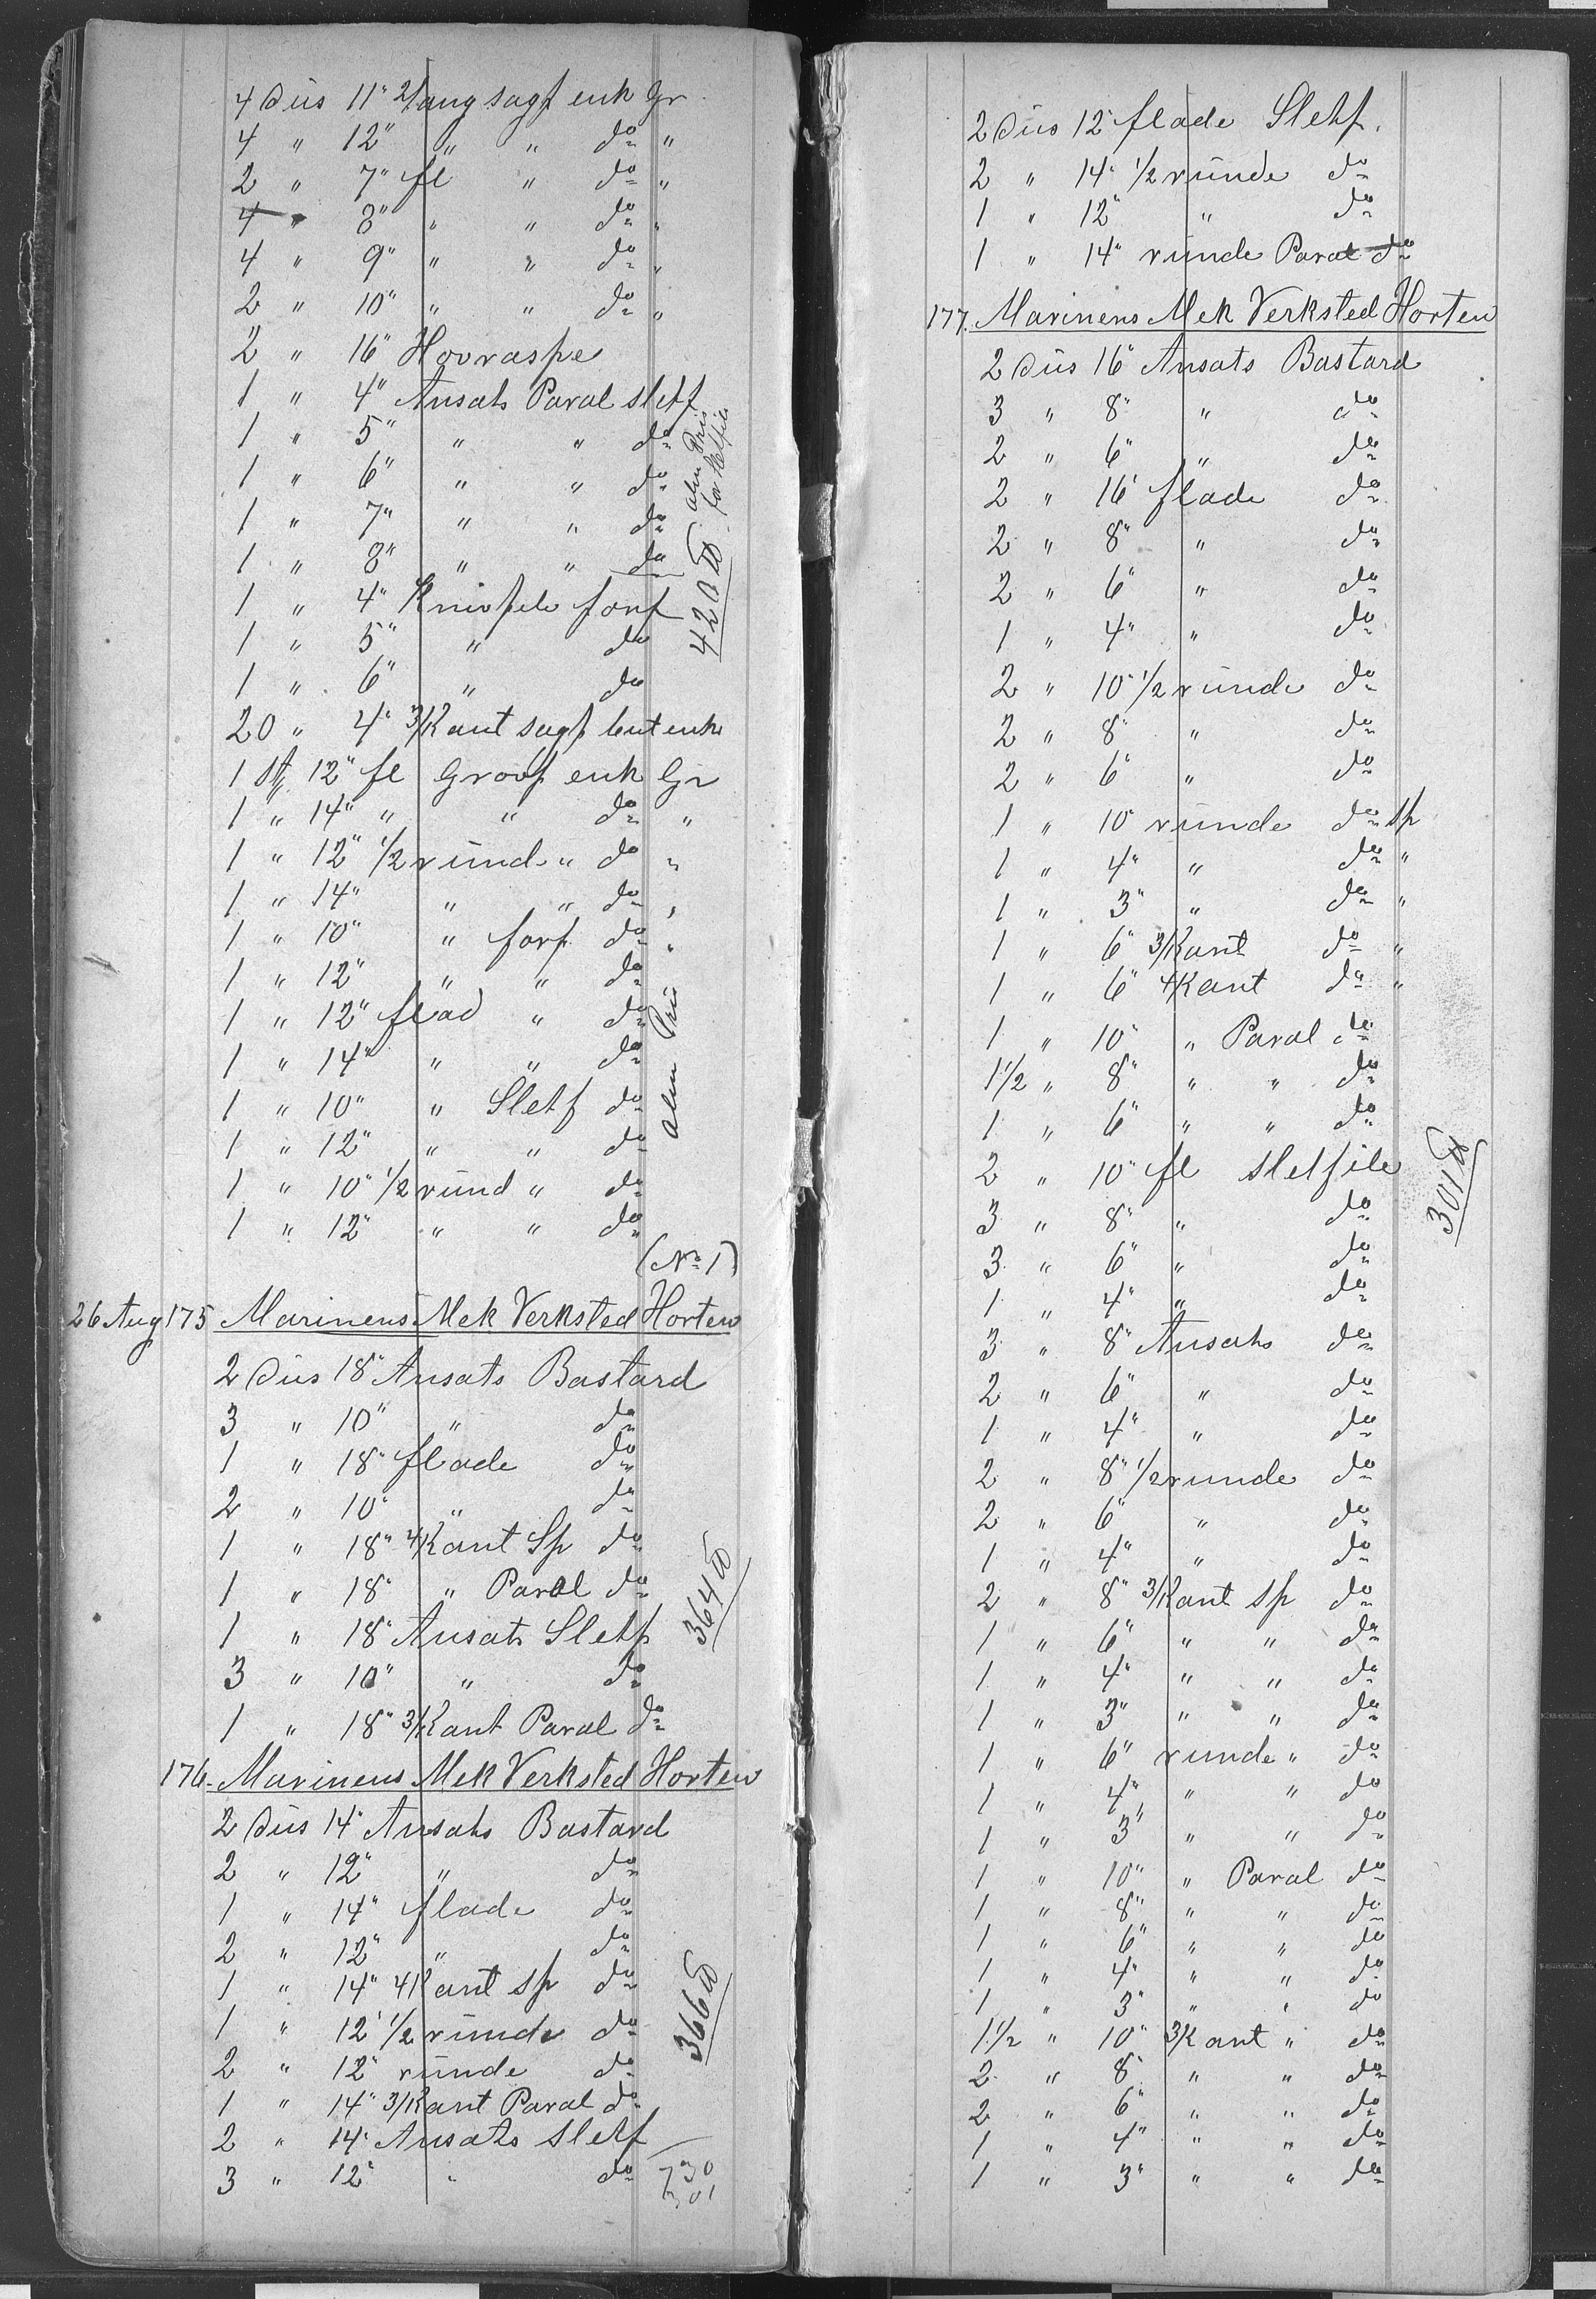 4 Düs 11" 2/ang sagf enk Gr
4 " 12" " " do "
2 " 7" fl " do "
4 " 8" " " do "
4 " 9" " " do "
2 " 10" " " do "
2 " 16" Hovraspe
1 " 4" Ansats Paral sletf
1 " 5" " " do
1 " 6" " " do
1 " 7" " " do
1 " 8" " " do
alm Pris
for
420 ℔
1 " 4" Knivfile forf
1 " 5" " do
1 " 6" " do
20 " 4" 3/Kant sagf but enk
1 St 12" fl Grovf enk Gr
1 " 14" " " do "
1 " 12" 1/2 ründ " do "
1 " 14" " " do "
1 " 10" " forf do "
1 " 12" " " do
1 " 12" flad " do
1 " 14" " " do
1 " 10" " Sletf do
1 " 12" " " do
1 " 10" 1/2 ründ " do
1 " 12" " " do
alm Pris
(No 1)
26 Aug 175 Marinens Mek Verksted Horten
2 Düs 18" Ansats Bastard
3 " 10" " do
1 " 18" flade do
2 " 10" " do
1 " 18" 4/Kant Sp do
1 " 18" " Paral do
1 " 18" Ansats Sletf
3 " 10" " do
1 " 18" 3/Kant Paral do
364 ℔
176. Marinens Mek Verksted Horten
2 Düs 14" Ansats Bastard
2 " 12" " do
1 " 14" flade do
2 " 12" " do
1 " 14" 4/Kant sp do
1 " 12" 1/2 ründe do
2 " 12" ründe do
1 " 14" 3/Kant Paral do
2 " 14" Ansats Sletf
3 " 12" " do
366 ℔
730
301
2 Düs 12" flade Sletf.
2 " 14" 1/2 ründe do
1 " 12" " do
1 " 14" ründe Paral do
177. Marinens Mek Verksted Horten
2 Düs 16" Ansats Bastard
3 " 8" " do
2 " 6" " do
2 " 16" flade do
2 " 8" " do
2 " 6" " do
1 " 4" " do
2 " 10" 1/2 ründe do
2 " 8" " do
2 " 6" " do
1 " 10" ründe do sp
1 " 4" " do "
1 " 3" " do "
1 " 6" 3/Kant do "
1 " 6" 4Kant do "
1 " 10" " Paral do
1 1/2 " 8" " " do
1 " 6" " " do
2 " 10" fl Sletfile
3 " 8" " do
3 " 6" " do
1 " 4" " do
3 " 8" Ansats do
2 " 6" " do
1 " 4" " do
2 " 8" 1/2 runde do
2 " 6" " do
1 " 4" " do
2 " 8" 3/Kant sp do
1 " 6" " " do
1 " 4" " " do
1 " 3" " " do
1 " 6" runde " do
1 " 4" " " do
1 " 3" " " do
1 " 10" " Paral do
1 " 8" " " do
1 " 6" " " do
1 " 4" " " do
1 " 3" " " do
1 1/2 " 10" 3/Kant " do
2 " 8" " " do
2 " 6" " " do
1 " 4" " " do
1 " 3" " " do
301 ℔